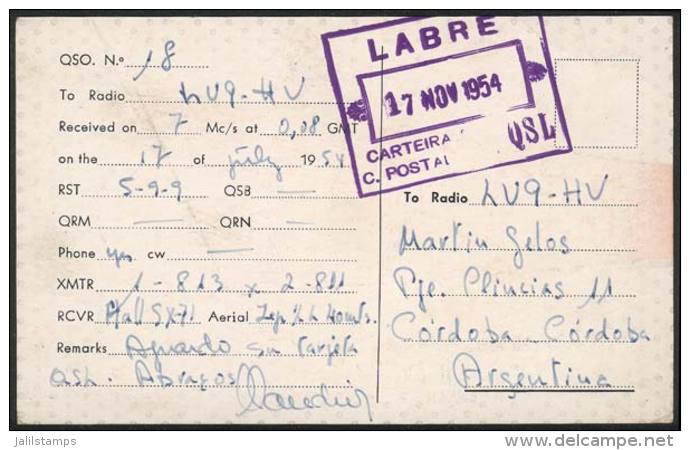 QSO. N.º 18
To Radio LU9-HV
Received on 7 Mc/s at 0,08 GMT
on the 17 of july 1954
RST 5-9-9 QSB —
QRM — QRN —
Phone yes cw —
XMTR 1-813 x 2-811
RCVR Hall SX-71 Aerial Zep. 40 mts.
Remarks Aguardo su tarjeta
QSL. Abraços
LABRE
17 NOV 1954
CARTEIRA QSL
C. POSTAL
To Radio LU9-HV
Martin
Pje. 11
Córdoba - Córdoba
Argentina
jalilstamps
delcampe.net